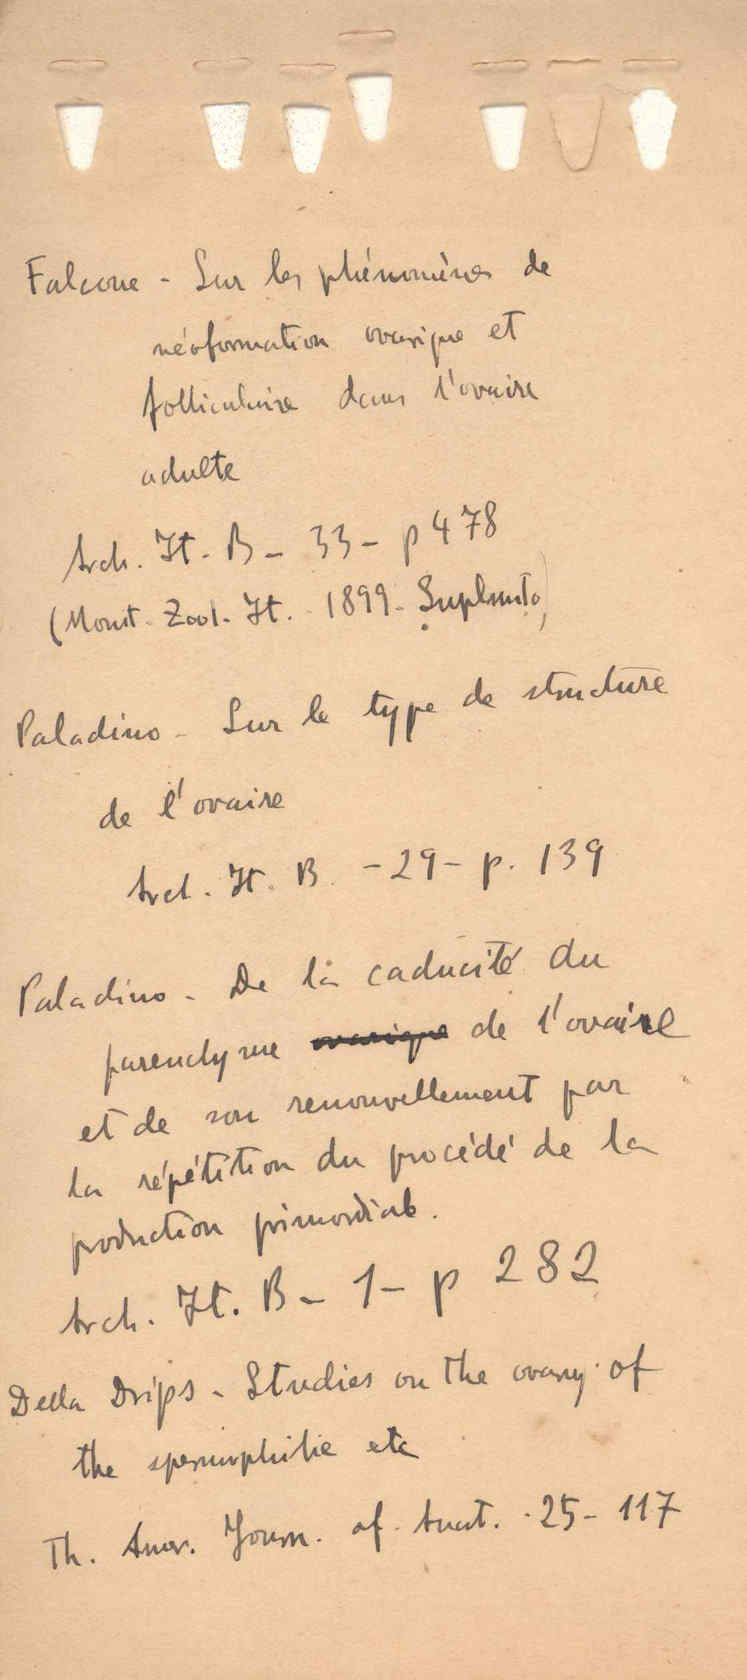 Falcone - Sur les phénomènes de
néoformation ovarique et
folliculaire dans l'ovaire
adulte
Arch. It. B - 33 - p 478
(Monit. Zool. It. 1899. Suplmto)
Paladino - Sur le type de structure
de l'ovaire
Arch. It. B - 29 - p. 139
Paladino - De la caducité du
parenchyme ovarique de l'ovaire
et de son renouvellement par
la répétition du procédé de la
production primordiale.
Arch. It. B - 1 - p 282
Della Drips - Studies on the ovary of
the spermophile etc
Th. Amer. Journ. of Anat. - 25 - 117